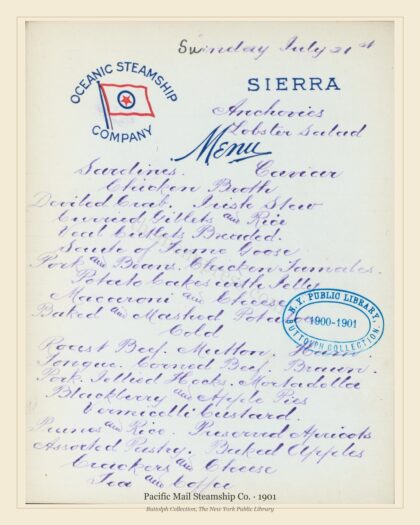 Sunday July 21st
OCEANIC STEAMSHIP
COMPANY
SIERRA
Anchovies
Lobster Salad
Menu
Sardines. Caviar
Chicken Broth
Deviled Crab. Irish Stew
Curried Giblets and Rice
Veal Cutlets Breaded.
Saute of Tame Goose
Pork and Beans. Chicken Tamales.
Potato Cakes with Jelly
Macaroni and Cheese
Baked and Mashed Potatoes
Cold
Roast Beef. Mutton. Ham
Tongue. Corned Beef. Brawn.
Pork. Jellied Hocks. Mortadella
Blackberry and Apple Pies
Vermicelli Custard.
Prunes and Rice. Preserved Apricots
Assorted Pastry. Baked Apples
Crackers and Cheese
Tea and Coffee
N. Y. PUBLIC LIBRARY.
1900-1901
BUTTOLPH COLLECTION.
Pacific Mail Steamship Co. · 1901
Buttolph Collection, The New York Public Library